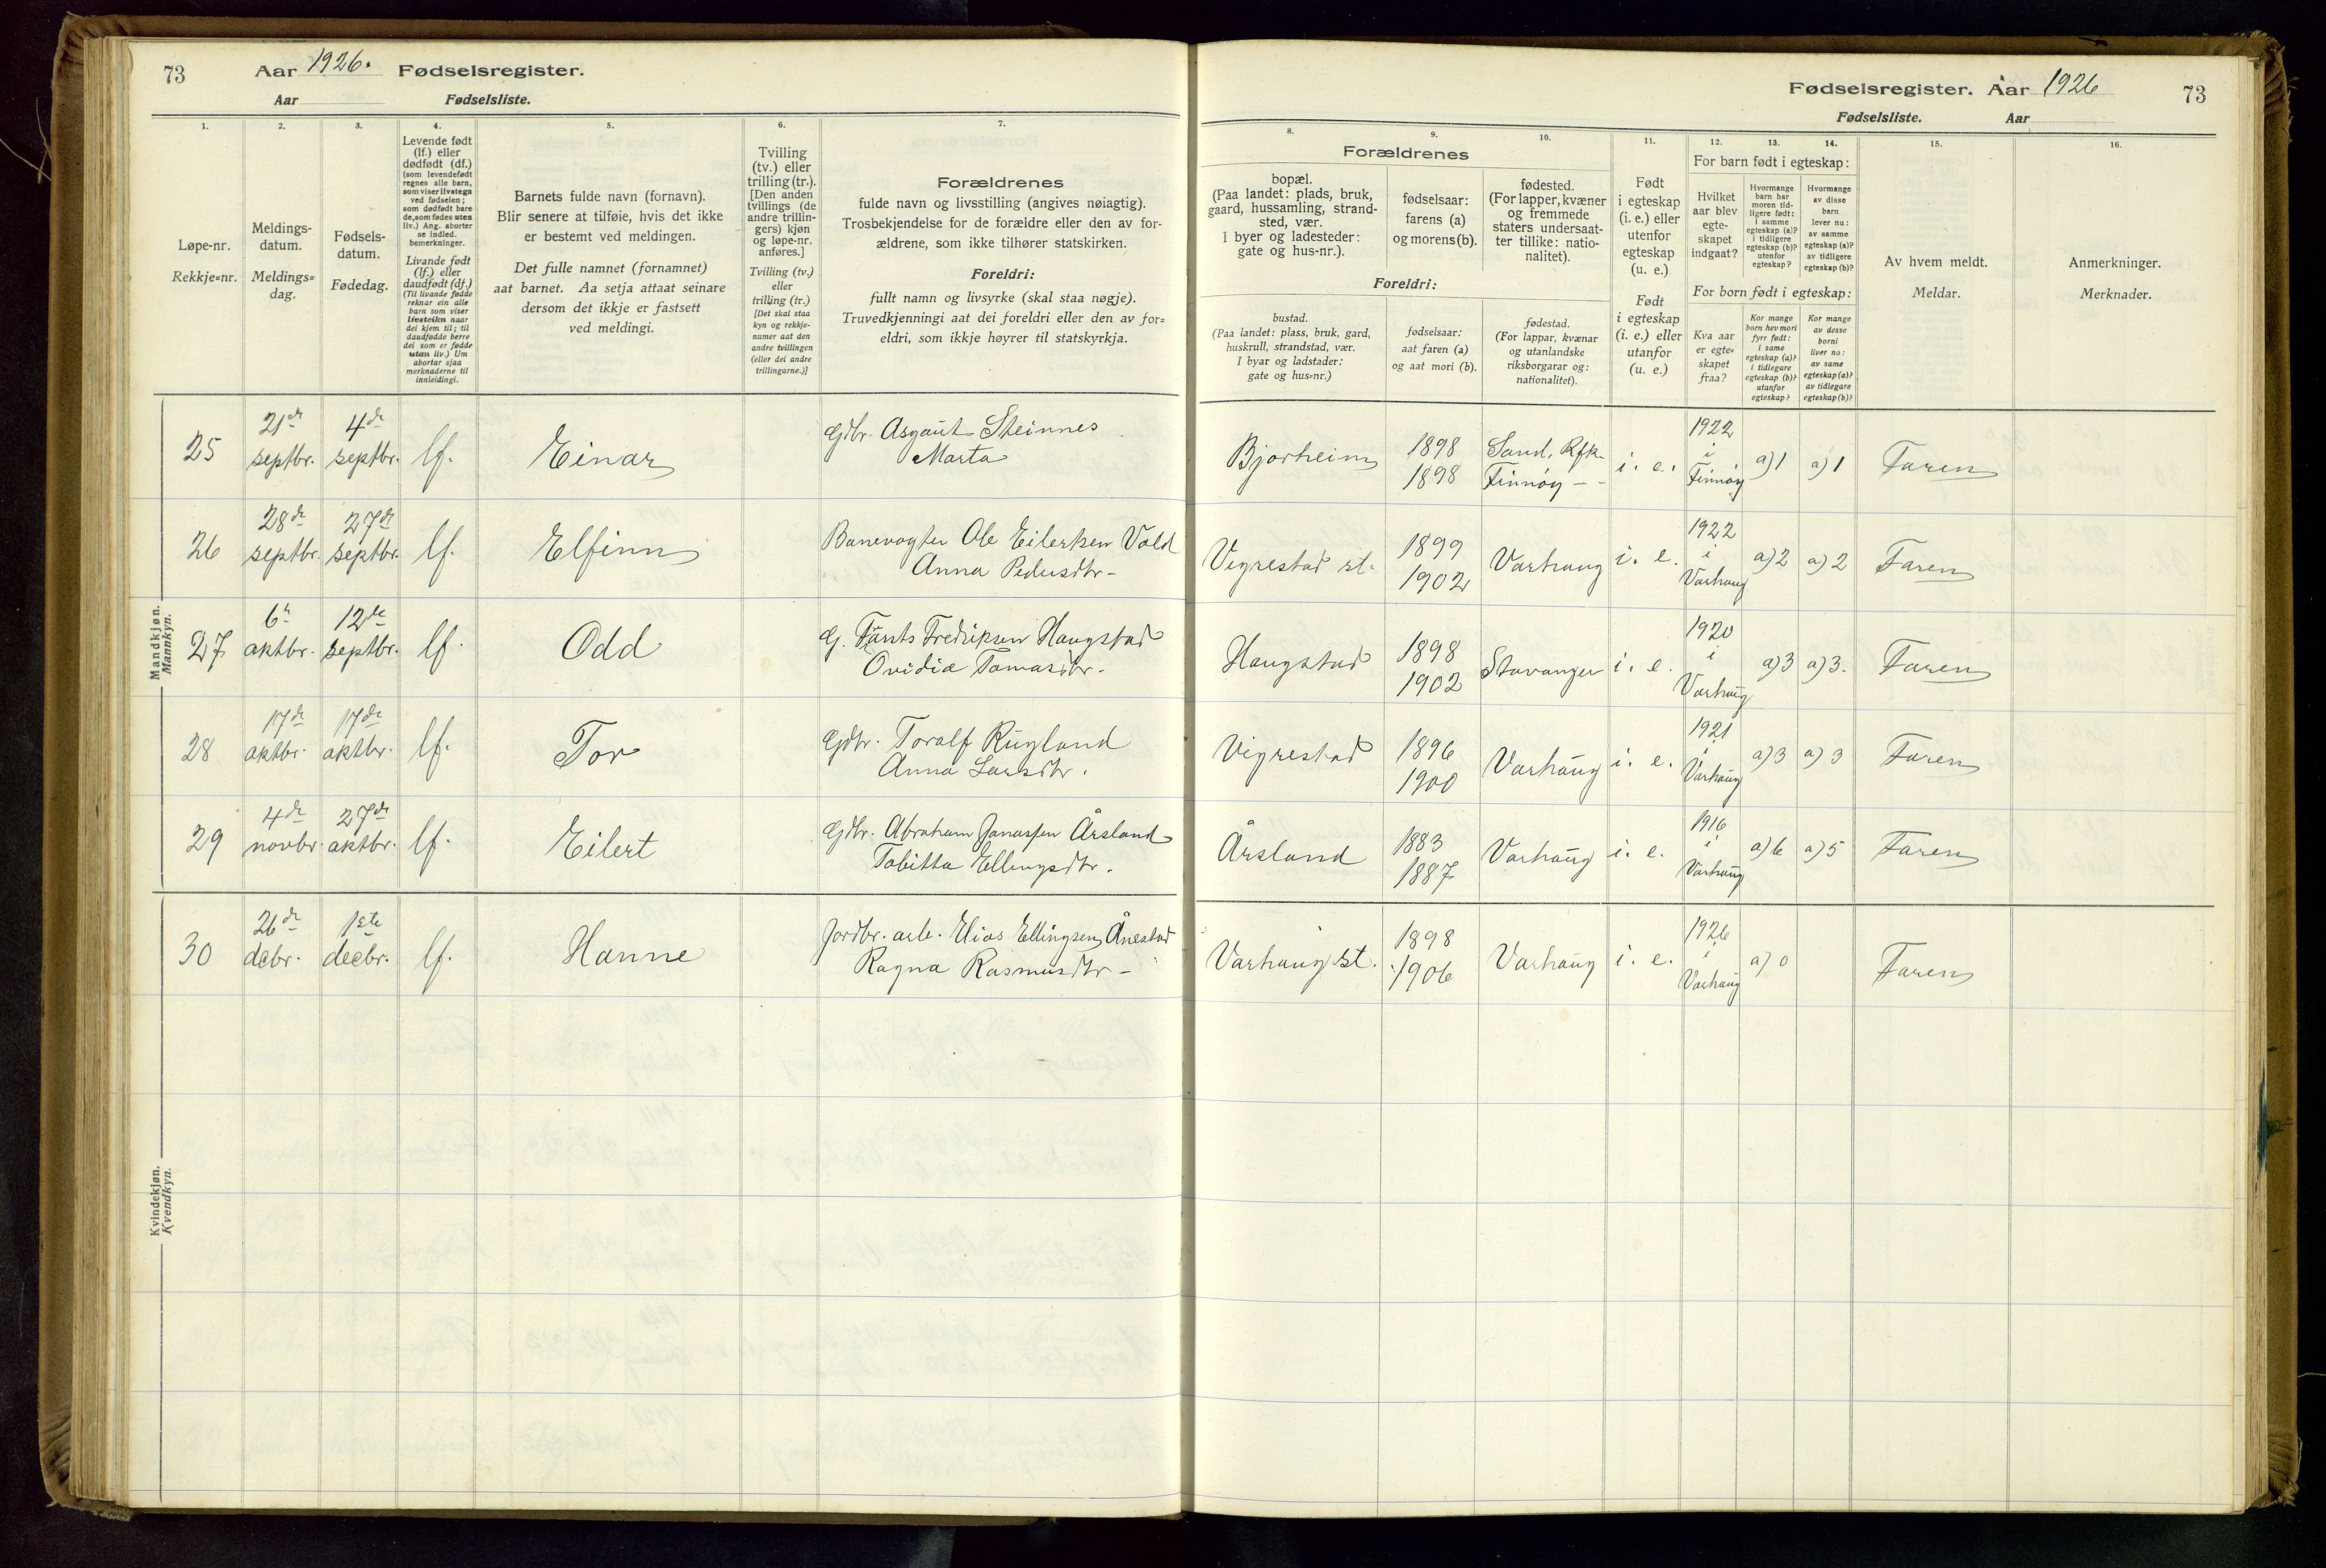 73
Aar 1926. Fødselsregister.
Aar Fødselsliste.
1.
2.
3.
4.
5.
6.
7.
Løpe-nr.
Rekkje=nr.
Meldings-
datum.
Meldings=
dag.
Fødsels-
datum.
Fødedag.
Levende født
(lf.) eller
dødfødt (df.)
(som levendefødt
regnes alle barn,
som viser livstegn
ved fødselen;
som dødfødt bare
de, som fødes uten
liv.) Ang. aborter
se indled.
bemerkninger.
Livande født
(lf.) eller
daudfødt (df.)
(Til livande fødde
reknar ein alle
barn som viser
livsteikn naar
dei kjem til; til
daudfødde berre
dei som er fødde
utan liv.) Um
abortar sjaa
merknaderne til
innleidingi.
Barnets fulde navn (fornavn).
Blir senere at tilføie, hvis det ikke
er bestemt ved meldingen.
Det fulle namnet (fornamnet)
aat barnet. Aa setja attaat seinare
dersom det ikkje er fastsett
ved meldingi.
Tvilling
(tv.) eller
trilling (tr.).
[Den anden
tvillings (de
andre trillin-
gers) kjøn
og løpe-nr.
anføres.]
Tvilling (tv.)
eller
trilling (tr.)
[Det skal staa
kyn og rekkje-
numer aat den
andre tvillingen
(eller dei andre
trillingarne.)]
Forældrenes
fulde navn og livsstilling (angives nøiagtig).
Trosbekjendelse for de forældre eller den av for-
ældrene, som ikke tilhører statskirken.
Foreldri:
fullt namn og livsyrke (skal staa nøgje).
Truvedkjenningi aat dei foreldri eller den av for=
eldri, som ikkje høyrer til statskyrkja.
Mandkjøn.
Mannkyn.
25
21de
septbr.
4de
septbr.
lf.
Einar
Gdbr. Asgaut Steinnes
Marta
26
28de
septbr.
27de
septbr.
lf.
Elfinn
Banevogter Ole Eilertsen Vold
Anna Pedersdtr-
27
6te
oktbr.
12te
septbr.
lf.
Odd
Fredriksen Haugstad
Ovidia Tomasdtr.
28
17de
oktbr.
17de
oktbr.
lf.
Tor
Gdbr. Toralf Rugland
Anna Larsdtr.
29
4de
novbr.
27de
oktbr.
lf.
Eilert
Gdbr. Abraham Jonassen Årsland
Tobitta Ellingsdtr.
Kvindekjøn.
Kvendkyn.
30
26de
debr.
1ste
decbr.
lf.
Hanne
Jordbr. arb. Elias Ellingsen Ånestad
Ragna Rasmusdtr-
Fødselsregister. Aar 1926
73
Fødselsliste. Aar
8.
9.
10.
11.
12.
13.
14.
15.
16.
Forældrenes
bopæl.
(Paa landet: plads, bruk,
gaard, hussamling, strand-
sted, vær.
I byer og ladesteder:
gate og hus-nr.).
fødselsaar:
farens (a)
og morens (b).
fødested.
(For lapper, kvæner
og fremmede
staters undersaat-
ter tillike: natio-
nalitet).
Foreldri:
bustad.
(Paa landet: plass, bruk, gard,
huskrull, strandstad, vær.
I byar og ladstader:
gate og hus=nr.)
fødselsaar:
aat faren (a)
og aat mori (b).
fødestad.
(For lappar, kvænar
og utanlandske
riksborgarar og:
nationalitet).
Født
i egteskap
(i. e.) eller
utenfor
egteskap
(u. e.)
Født
i egteskap
(i. e.) eller
utanfor
(u. e.)
For barn født i egteskap:
Hvilket
aar blev
egte-
skapet
indgaat?
Hvormange
barn har
moren tid-
ligere født:
i samme
egteskap (a)?
i tidligere
egteskap (b)?
utenfor
egteskap?
Hvormange
av disse
barn
lever nu:
av samme
egteskap (a)?
av tidligere
egteskap (b)?
For born født i egteskap:
Kva aar
er egte=
skapet
fraa?
Kor mange
born hev mori
fyrr født:
i same
egteskap (a)?
i tidlegare
egteskap (b)?
utanfor
egteskap?
Kor mange
av desse
borni
liver no:
av same
egteskap (a)?
av tidlegare
egteskap (b)?
Av hvem meldt.
Meldar.
Anmerkninger.
Merknader.
Bjorheim
1898
1898
Sand, Rfk.
Finnöy - -
i. e.
1922
i
Finnöy
a) 1
a) 1
Faren
Vigrestad st.
1899
1902
Varhaug
i. e.
1922
i
Varhaug
a) 2
a) 2
Faren
Haugstad
1898
1902
Stavanger
i. e.
1920
i
Varhaug
a) 3
a) 3.
Faren
Vigrestad
1896
1900
Varhaug
i. e.
1921
i
Varhaug
a) 3
a) 3
Faren
Årsland
1883
1887
Varhaug
i. e.
1916
i
Varhaug
a) 6
a) 5
Faren
Varhaug st.
1898
1906
Varhaug
i. e.
1926
i
Varhaug
a) 0
Faren